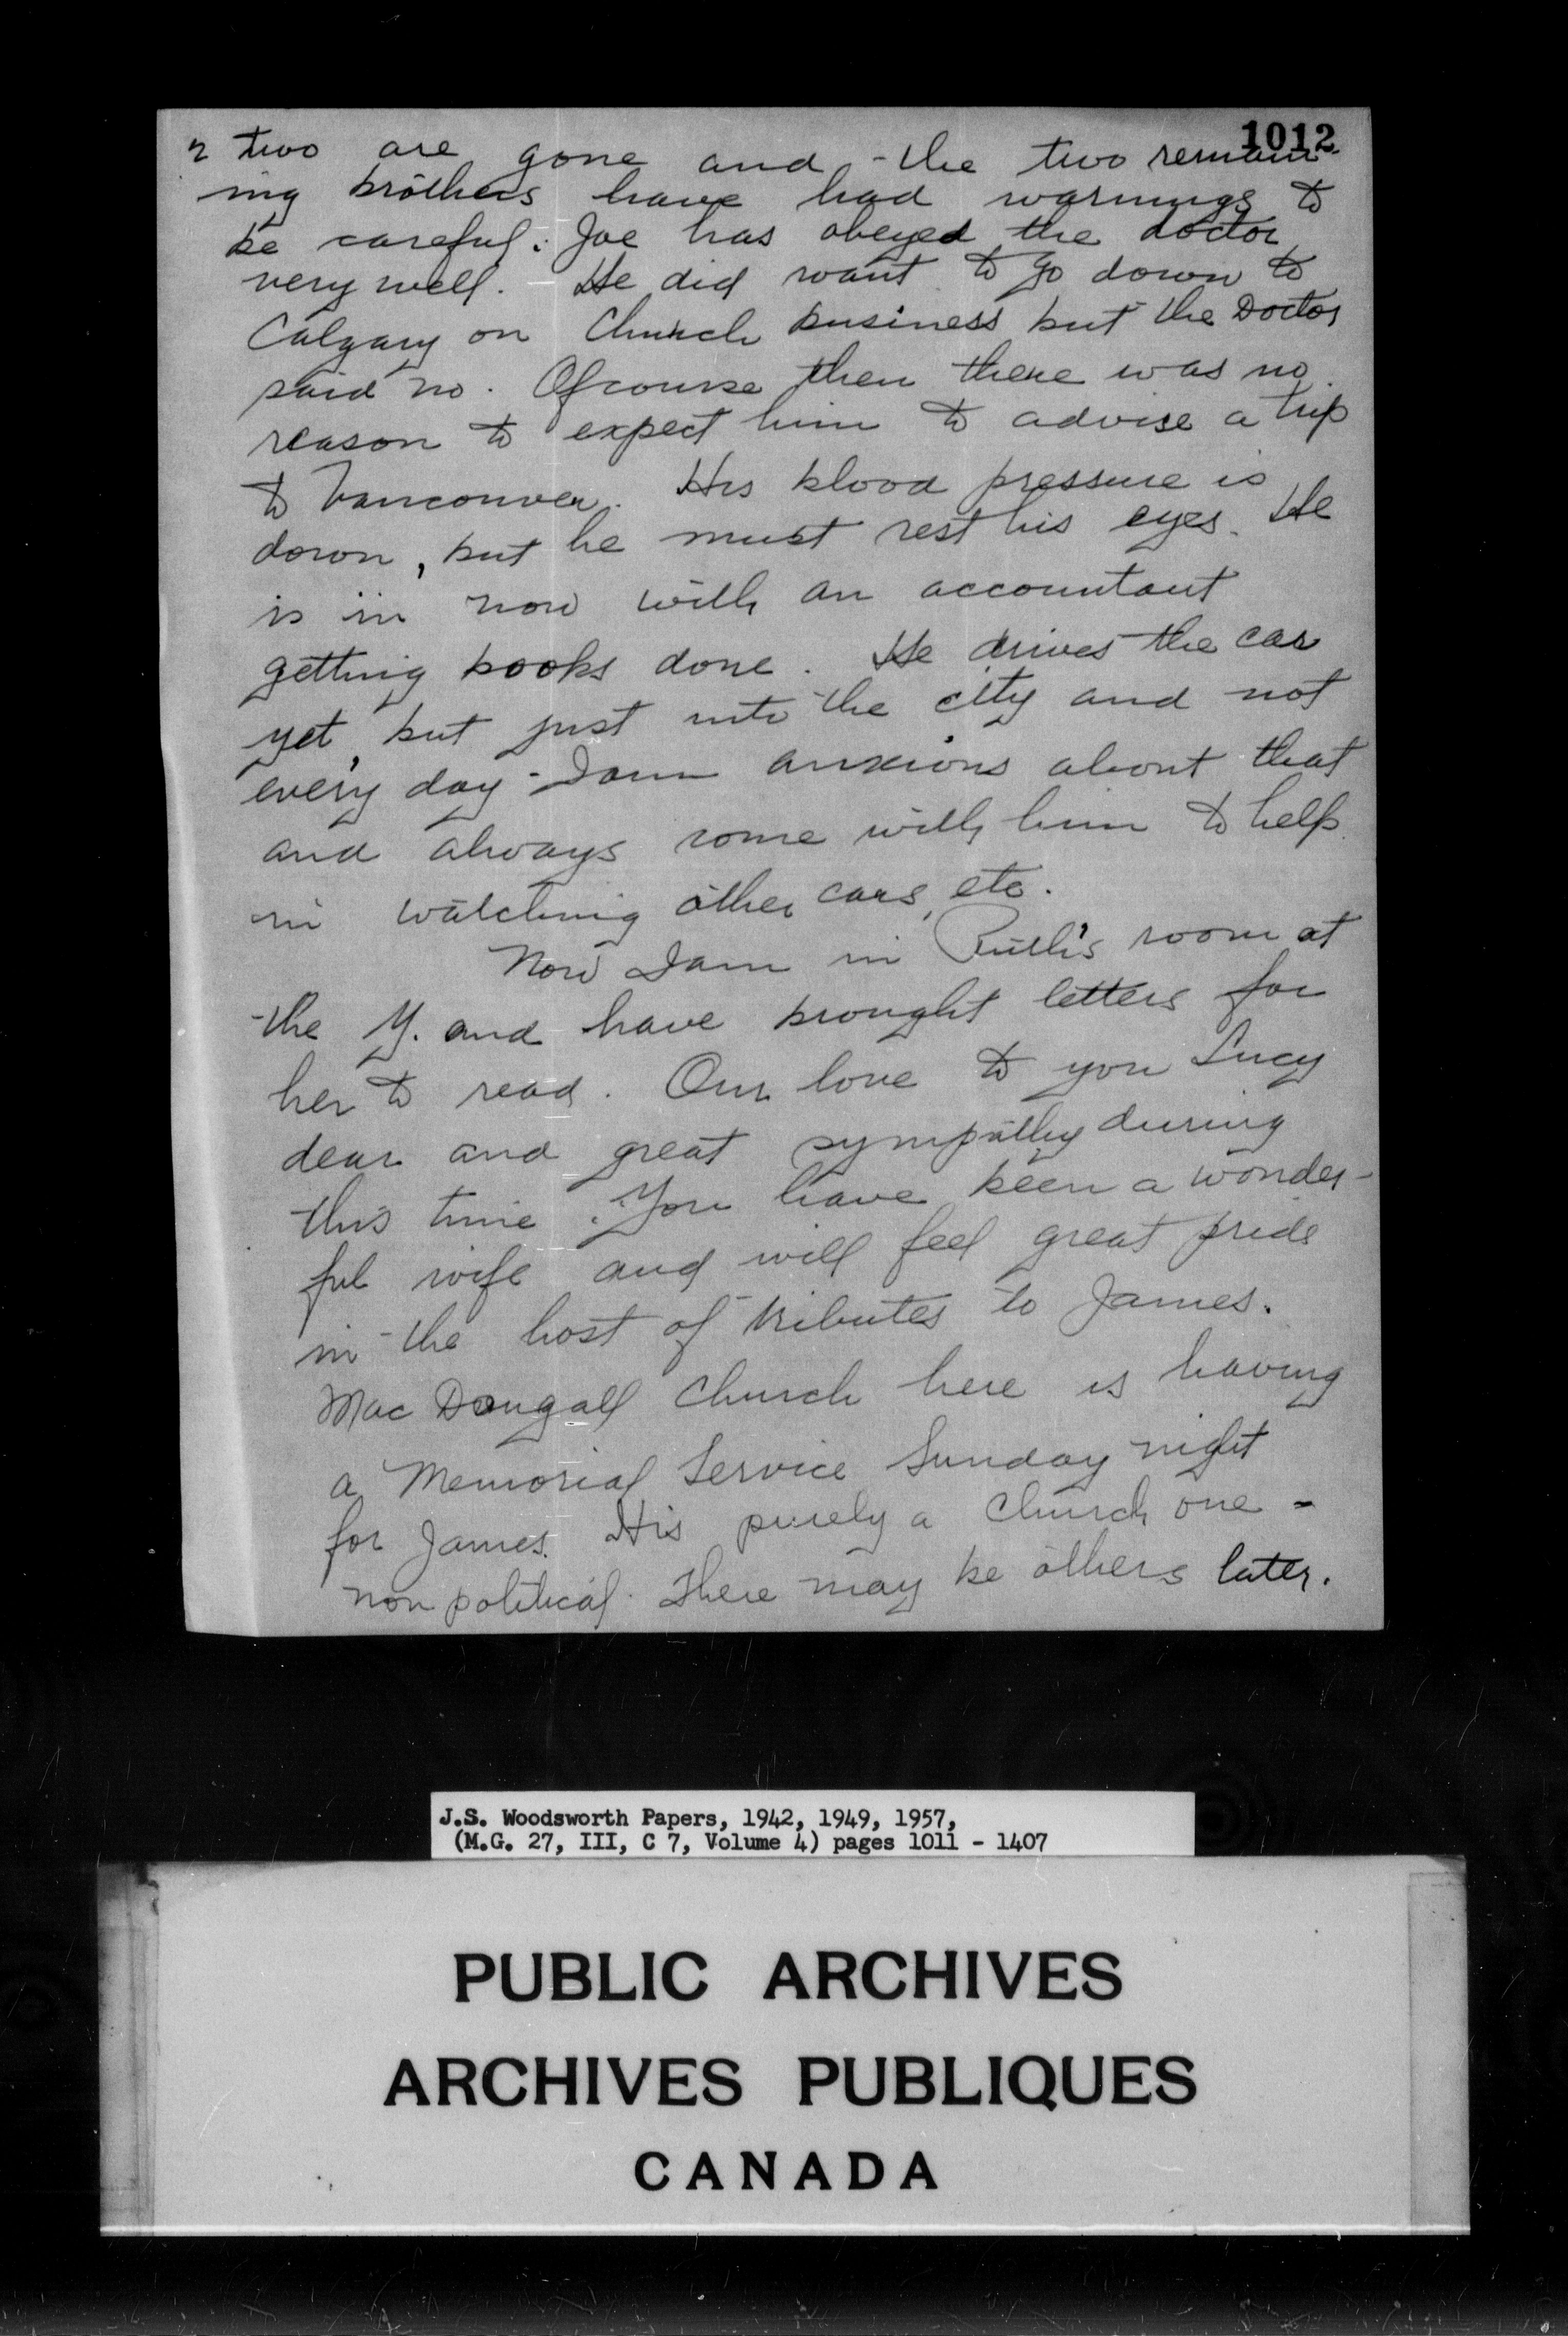 1012
2 two are gone and the two remain-
ing brothers have had warnings to
be careful. Joe has obeyed the doctor
very well. He did want to go down to
Calgary on Church business but the Doctor
said no. Ofcourse then there was no
reason to expect him to advise a trip
to Vancouver. His blood pressure is
down, but he must rest his eyes. He
is in now with an accountant
getting books done. He drives the car
yet, but just into the city and not
every day - I am anxious about that
and always come with him to help
in watching other cars, etc.
Now I am in Ruth's room at
the Y. and have brought letters for
her to read. Our love to you Lucy
dear and great sympathy during
this time. You have been a wonder-
ful wife and will feel great pride
in the host of tributes to James.
MacDougall Church here is having
a Memorial Service Sunday night
for James. It is purely a Church one -
non political. There may be others later.
J.S. Woodsworth Papers, 1942, 1949, 1957,
(M.G. 27, III, C 7, Volume 4) pages 1011 - 1407
PUBLIC ARCHIVES
ARCHIVES PUBLIQUES
CANADA